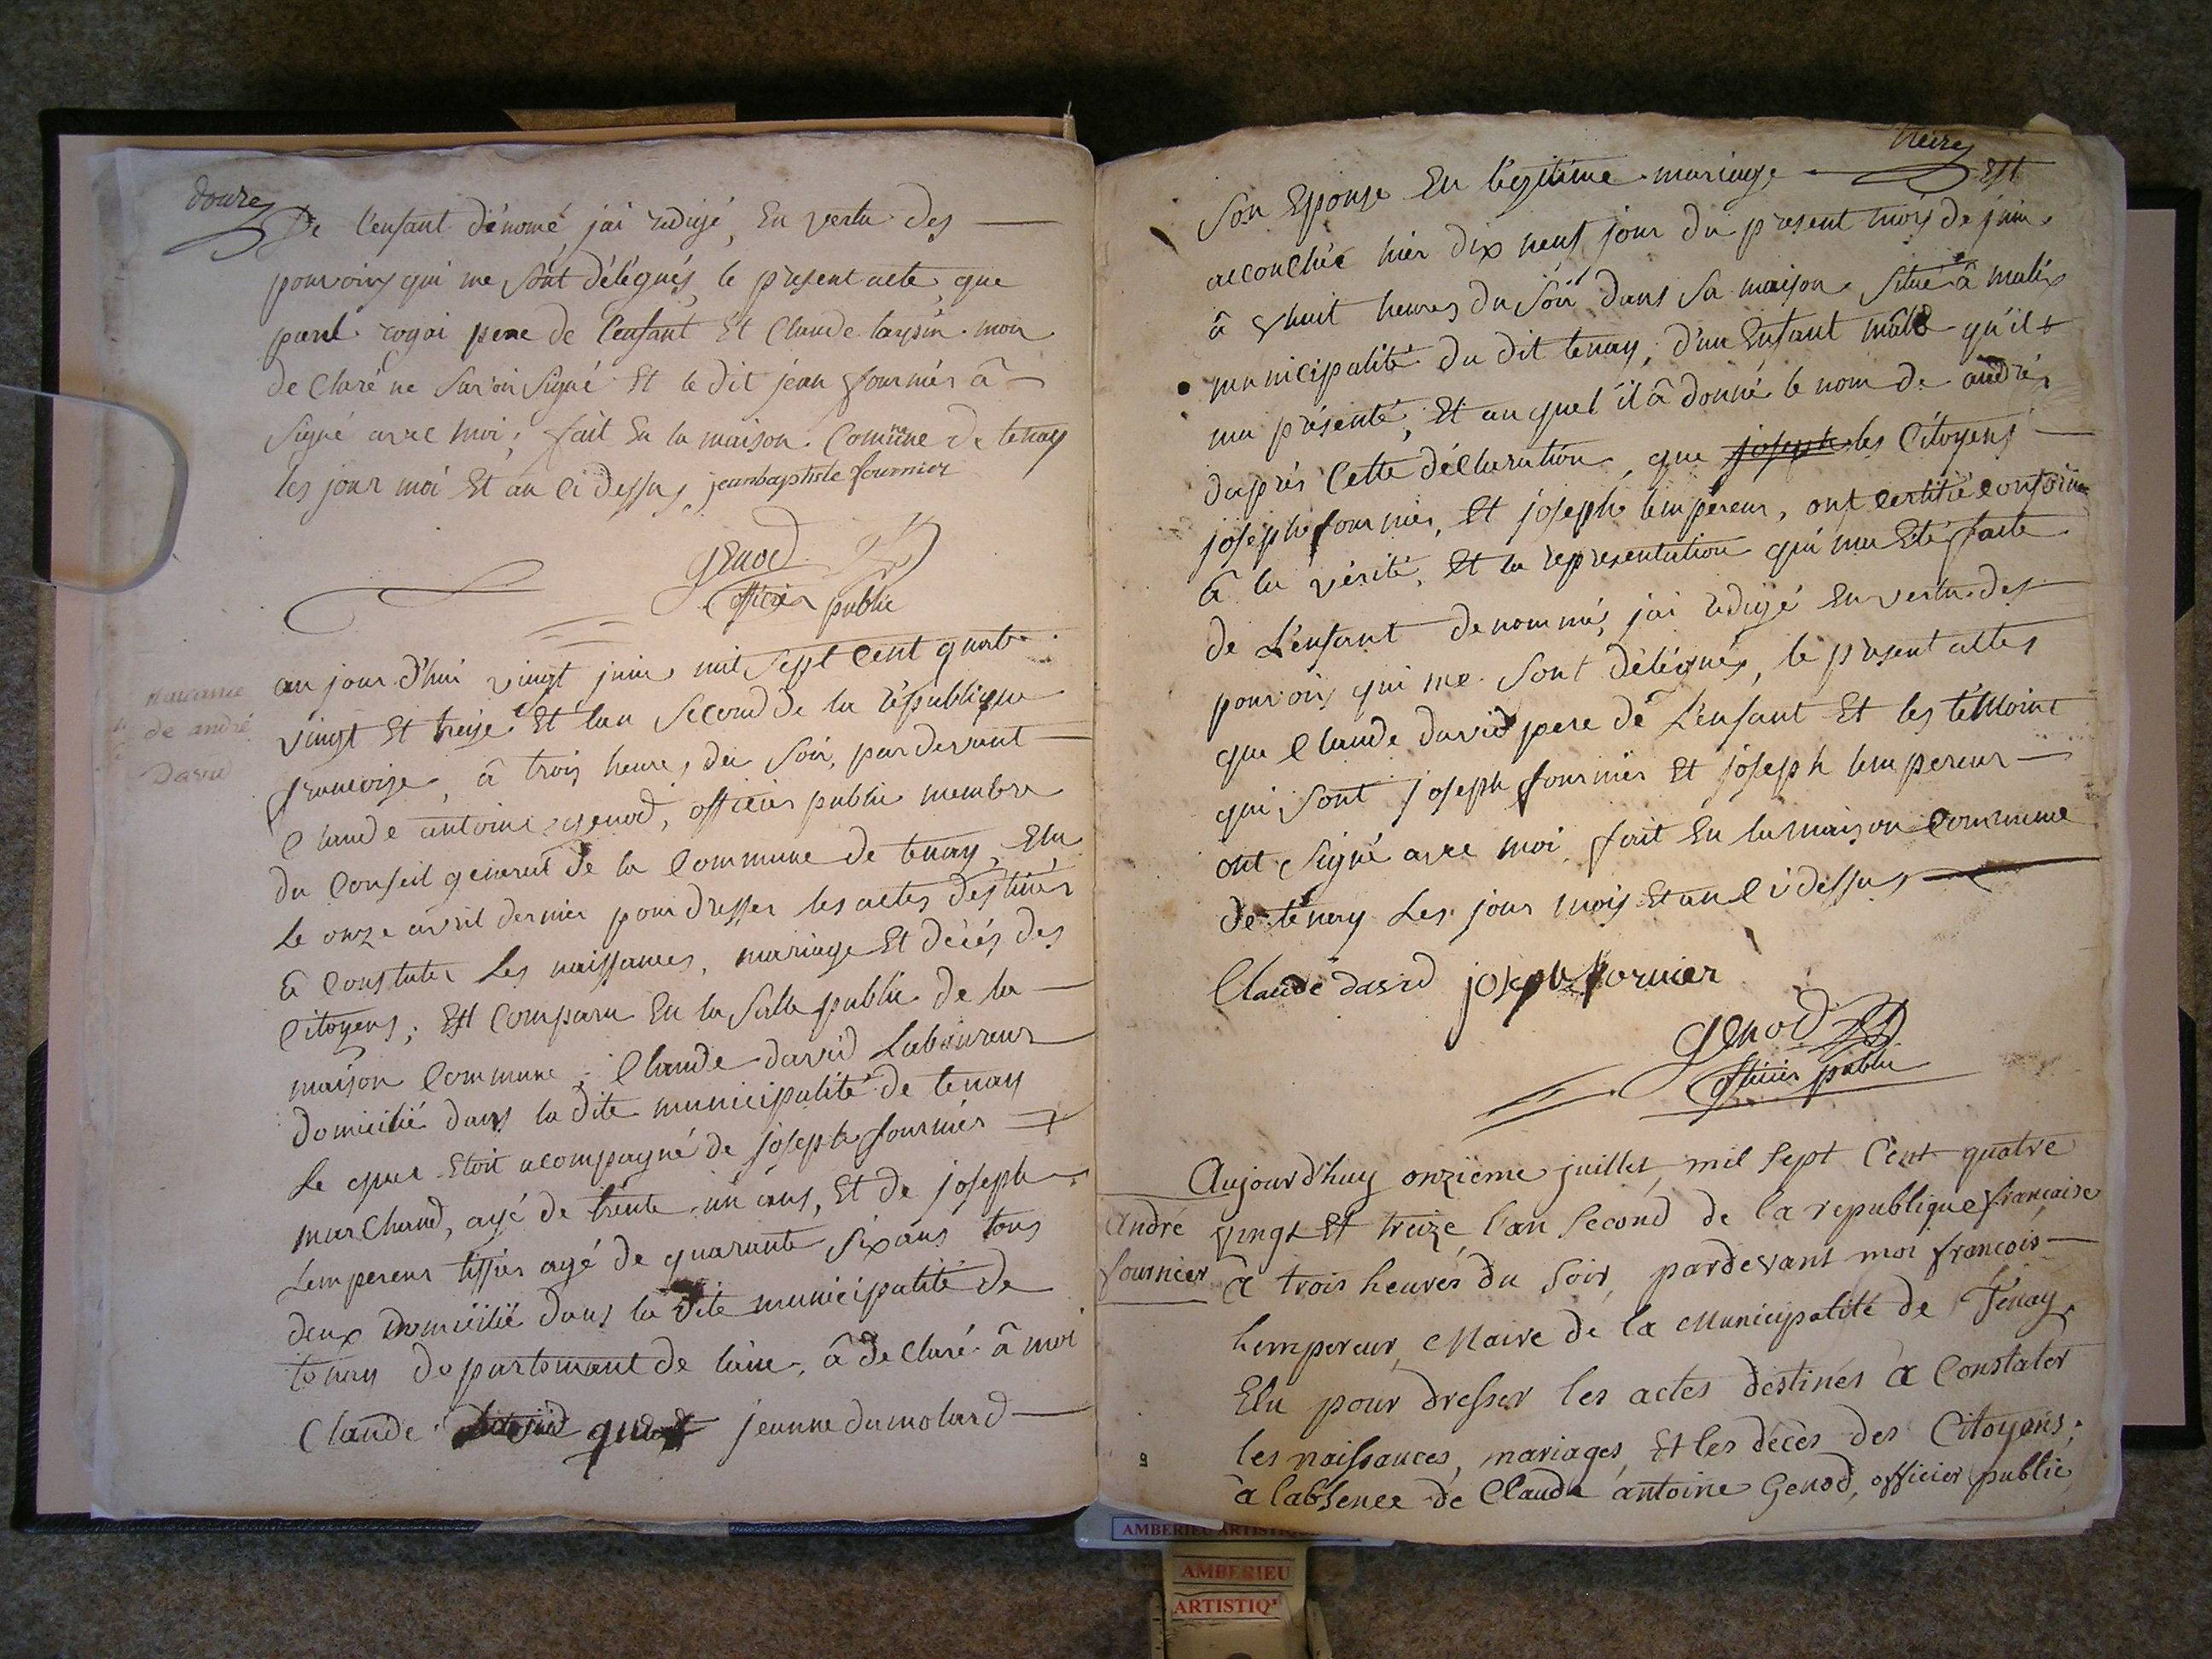 douze
De l'enfant dénomé, jai redigé, En vertu des
pouvoirs qui me sont délégués, le present acte, que
parel rogai pere de l'enfant Et Claude laysin mon
declaré ne savoir signé Et le dit jean fournier â
signé avec moi, fait En la maison Comune de tenay
les jour moi Et an ci dessus, jeanbaptiste fournier
Genod
officier public
naissance
de andré
David
aujourd'hui vingt juin mil sept cent quatre
vingt Et treize Et lan second de la république
francoise, â trois heures du soir, pardevant
Claude antoine genod, officier public membre
du Conseil general de la Commune de tenay, Elu
Le onze avril dernier pour dresser les actes destinés
â Constater Les naissances, mariage Et décés des
Citoyens; Est Comparu En la salle public de la
maison Commune; Claude david Laboureur
domicilié dans la dite municipalité de tenay
Le quel Etoit acompagné de joseph fournier
marchand, agé de trente un ans, Et de joseph
Lempereur tissier agé de quarante six ans tous
deux domicilié dans la dite municipalité de
tenay departemant de lain, â declaré â moi
Claude jeanne dumolard
treize
son Eponse En légitime mariage Est
accouchée hier dix neuf jour du present mois de juin
â huit heures du soir dans sa maison situé â malix
municipalité du dit tenay, d'un Enfant mâle qu'il
ma présenté, Et au quel il â donné le nom de andré,
daprés Cette déclaration, que joseph les Citoyens
joseph fournier, Et joseph lempereur, ont certifié conforme
â la vérité, Et la representation qui ma Eté faite
de L'enfant denommé, jai redigé En vertu des
pouvoirs qui me sont délégués, le present actes
que Claude david pere de L'enfant Et les témoint
qui sont joseph fournier Et joseph lempereur
ont signé avec moi fait En la maison Commune
de tenay Les jour mois Et an ci dessus
Claude david joseph fornier
Genod
officier public
Aujourd'huy onzième juillet, mil sept Cent quatre
André
fournier
vingt Et treize l'an second de la republique française
à trois heures du soir, pardevant moi françois
Lempereur, Maire de la Municipalité de Tenay,
Elu pour dresser les actes destinés à Constater
les naissances, mariages, Et les décès des Citoyens;
à l'absence de Claude antoine Genod, officier public
9
AMBERIEU ARTISTIQUE
AMBERIEU
ARTISTIQ'